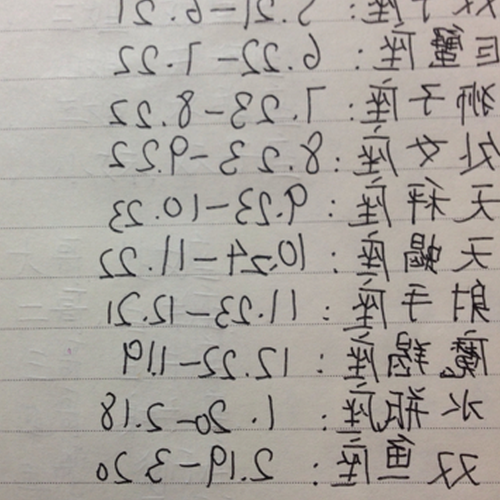 双子座: 5.21-6.21
巨蟹座: 6.22-7.22
狮子座: 7.23-8.22
处女座: 8.23-9.22
天秤座: 9.23-10.23
天蝎座: 10.24-11.22
射手座: 11.23-12.21
魔羯座: 12.22-1.19
水瓶座: 1.20-2.18
双鱼座: 2.19-3.20